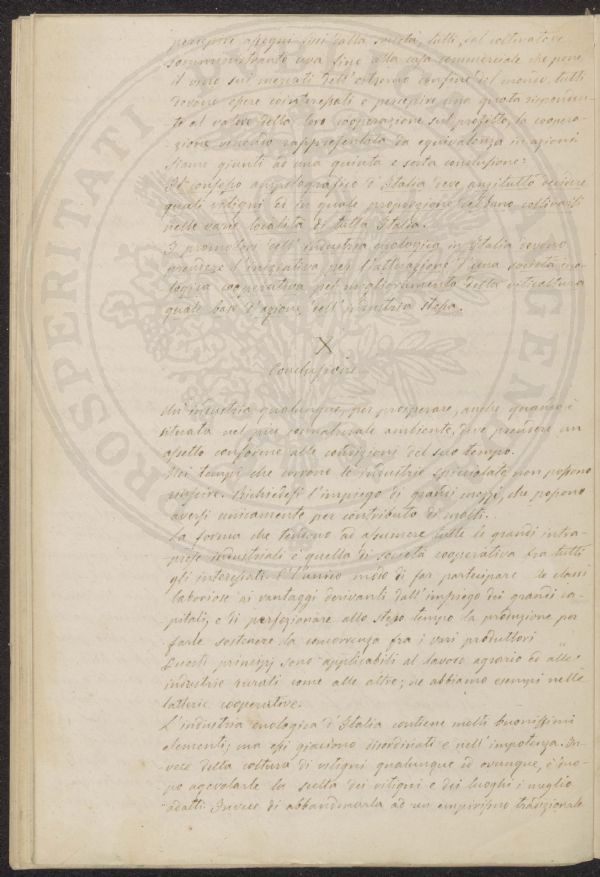 percepire assegni fissi dalla società, tutti, dal coltivatore
somministrante uva fino alla casa commerciale che pone
il vino sui mercati dell'estremo confine del mondo, tutti
devono essere cointeressati e percepire una quota risponden-
te al valore della loro cooperazione sul profitto, la coopera-
zione venendo rappresentata da equivalenza in azioni
Siamo giunti ad una quinta e sesta conclusione:
Il consesso ampelografico d'Italia deve anzitutto decidere
quali vitigni ed in quale proporzione debbano coltivarsi
nelle varie località di tutta Italia.
I promotori dell'industria enologica in Italia devono
prendere l'iniziativa per l'attuazione d'una società eno-
logica cooperativa pel miglioramento della viticoltura
quale base d'azione dell'industria stessa.
X
Conclusioni
Un'industria qualunque, per prosperare, anche quando è
situata nel più connaturale ambiente, deve prendere un
aspetto conforme alle condizioni del suo tempo.
Nei tempi che corrono le industrie spicciolate non possono
riuscire. Richiedesi l'impiego di grandi mezzi, che possono
aversi unicamente per contributo di molti.
La forma che tendono ad assumere tutte le grandi intra-
prese industriali è quella di società cooperativa fra tutti
gli interessati. È l'unico modo di far partecipare le classi
laboriose ai vantaggi derivanti dall'impiego dei grandi ca-
pitali, e di perfezionare allo stesso tempo la produzione per
farle sostenere la concorrenza fra i vari produttori
Questi principj sono applicabili al lavoro agrario ed alle
industrie rurali come alle altre; ne abbiamo esempi nelle
latterie cooperative.
L'industria enologica d'Italia contiene molti buonissimi
elementi; ma essi giaciono disordinati e nell'impotenza. In-
vece della coltura di vitigni qualunque ed ovunque, è duo-
po agevolarle la scelta dei vitigni e dei luoghi i meglio
adatti. Invece di abbandonarla ad un empirismo tradizionale
PROSPERITATI AUGENDAE